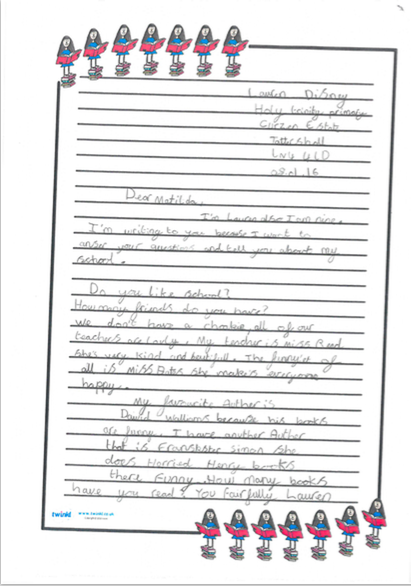 Lauren Disney
Holy trinity primary
Curzen Estate
Tattershall
LN4 4LD
Dear Matilda,
I'm Lauren also I am nine.
I'm writing to you because I want to
your questions and tell you about my
school.
Do you like school?
How many friends do you have?
We don't have a chokie, all of our
teachers are lovly. My teacher is miss Reed
she's very kind and The funny'st of
all is Miss she makers everyone
happy.
My favourite Auther is
David Walliams because his books
are funny. I have another Auther
that is simon she
does Horried Henry books
there Funny. How many books
have you read? You Lauren
twinkl www.twinkl.co.uk